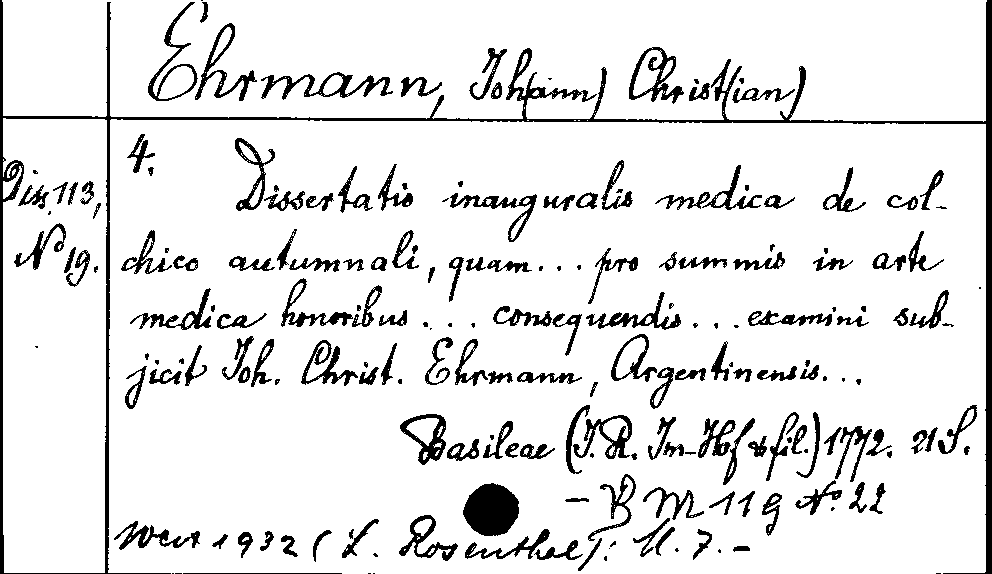 Ehrmann, Joh(ann) Christ(ian)
4.
Diss. 113,
No 19.
Dissertatio inauguralis medica de col-
chico autumnali, quam... pro summis in arte
medica honoribus... consequendis... examini sub-
jicit Joh. Christ. Ehrmann, Argentinensis...
Basileae (J. R. Im-Hof & fil.) 1772. 21 S.
- B M 11 g No. 22
Wert 1932 (L. Rosenthal): M. 7.-